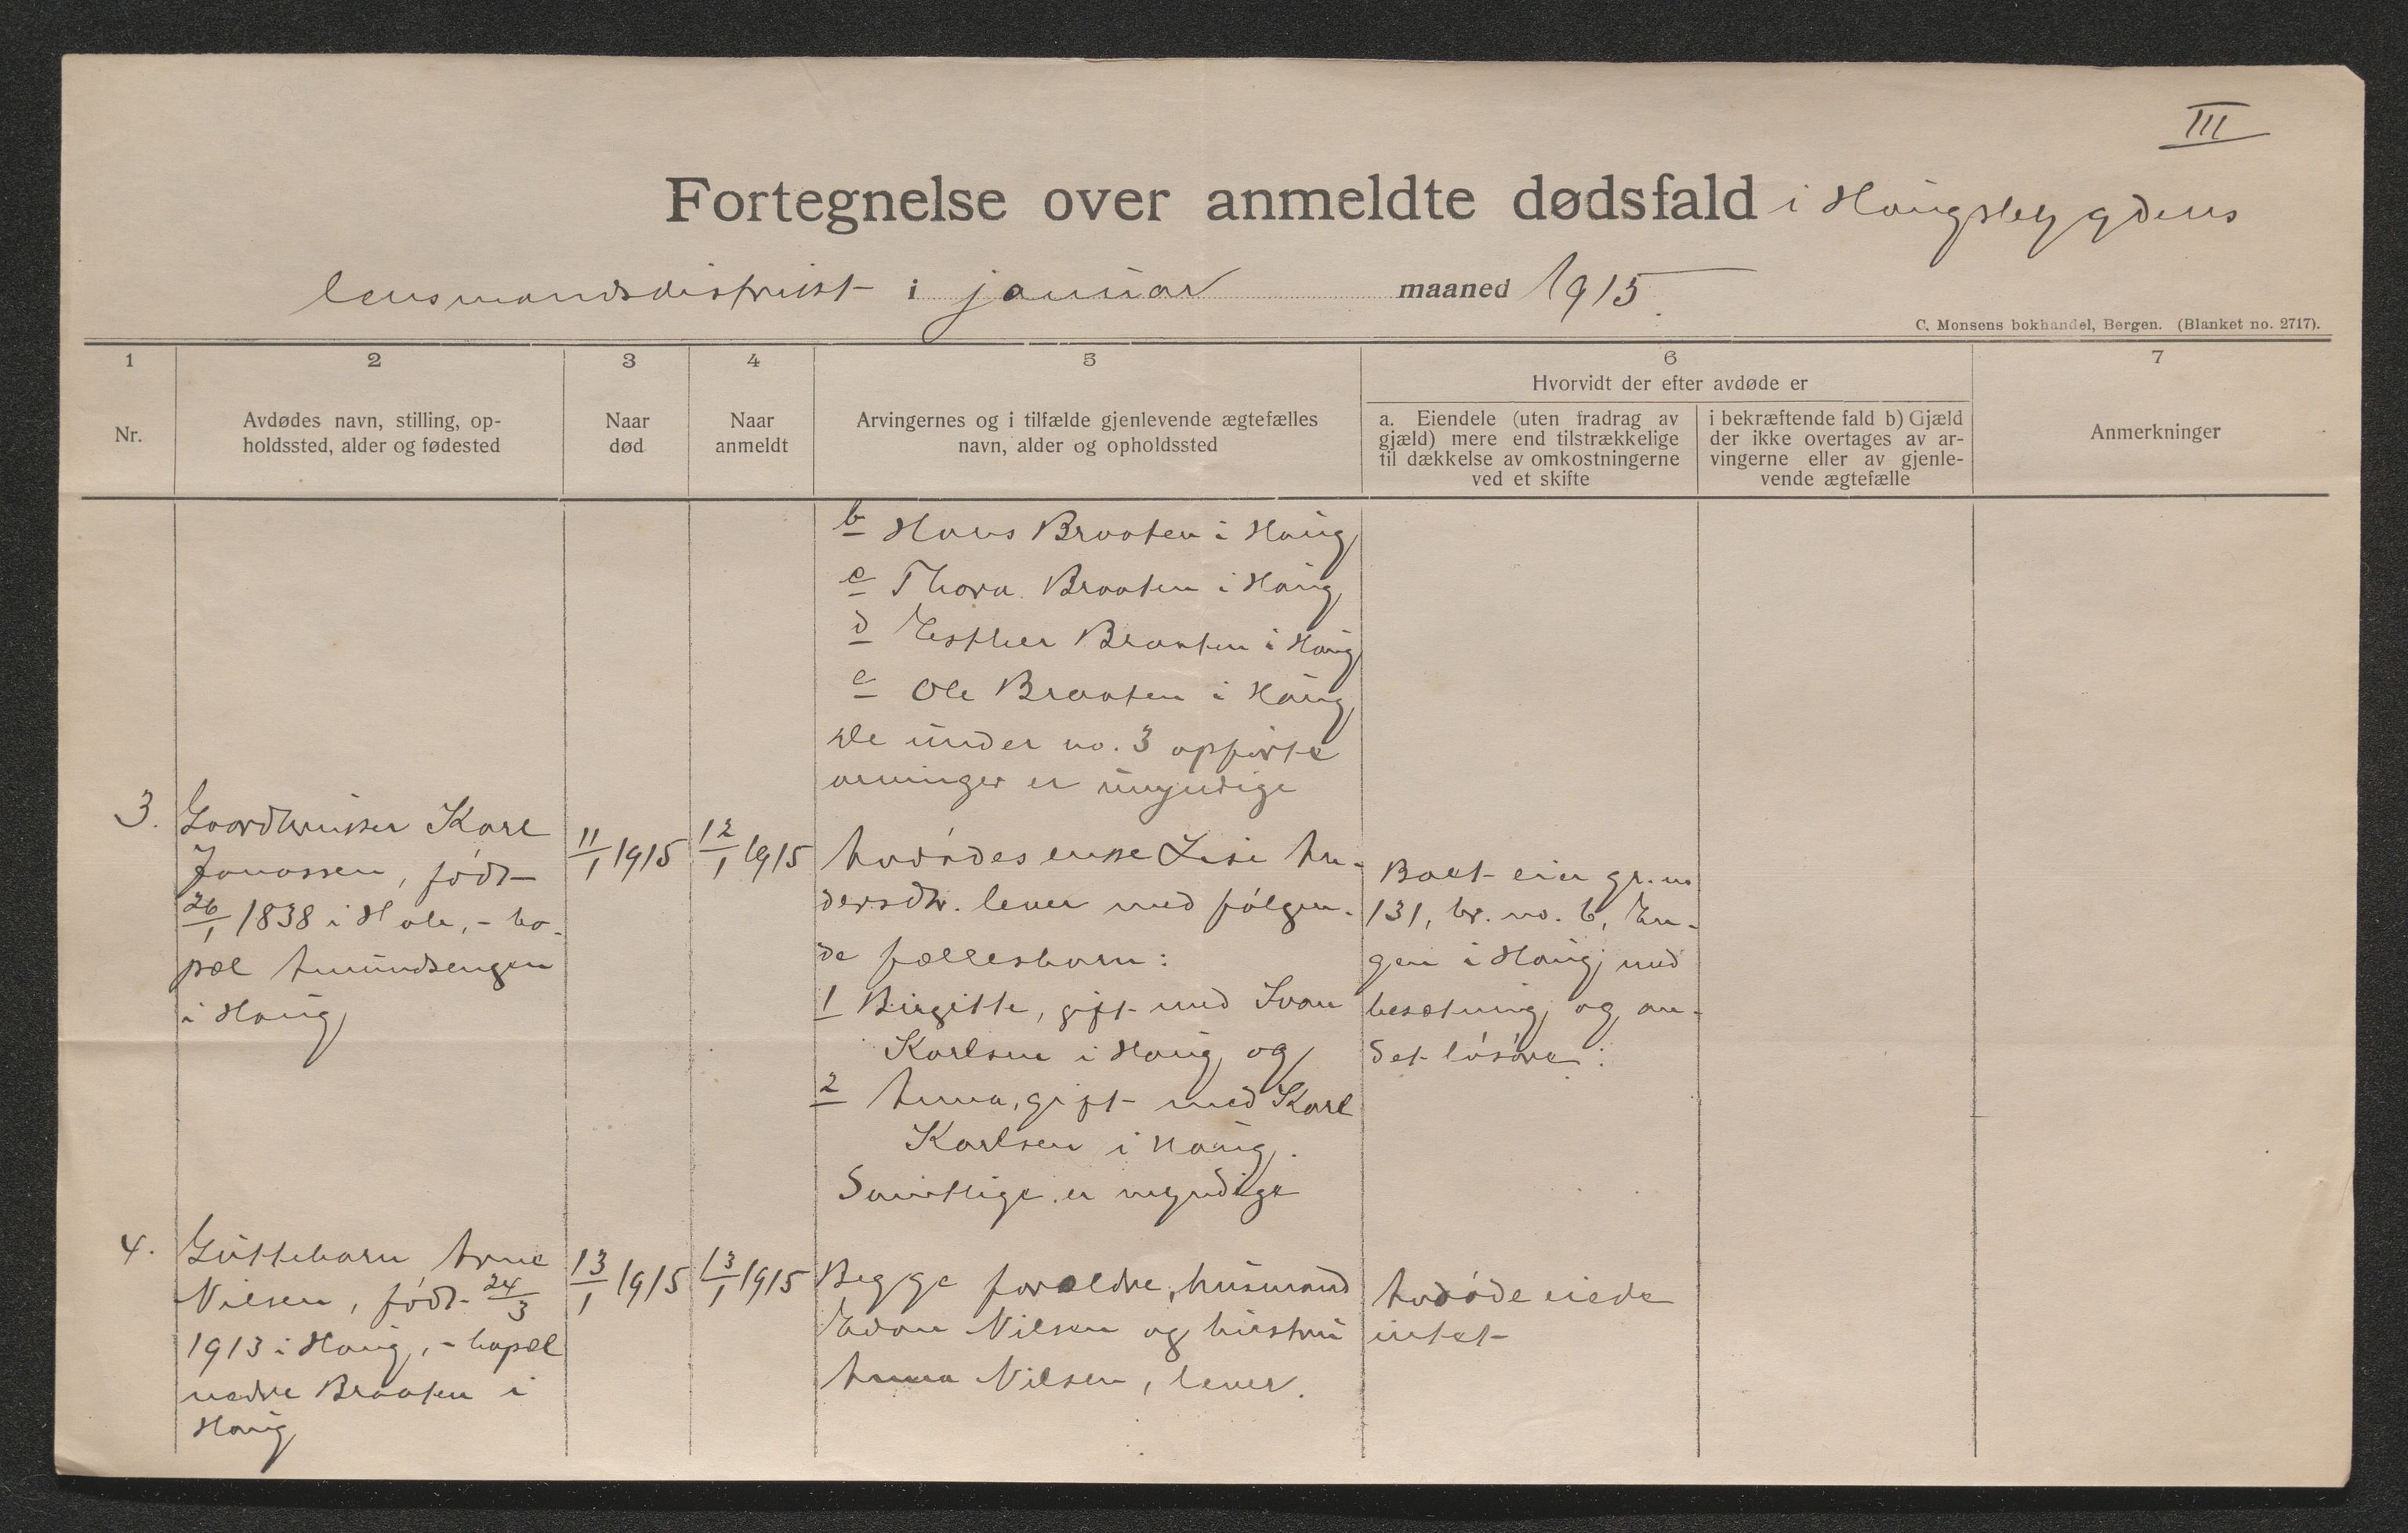 III
Fortegnelse over anmeldte dødsfald i Haugsbygdens
lensmandsdistrikt i januar maaned 1915.
C. Monsens bokhandel, Bergen. (Blanket no. 2717).
1
2
3
4
5
6
7
Nr.
Avdødes navn, stilling, op-
holdssted, alder og fødested
Naar
død
Naar
anmeldt
Arvingernes og i tilfælde gjenlevende ægtefælles
navn, alder og opholdssted
Hvorvidt der efter avdøde er
a. Eiendele (uten fradrag av
gjæld) mere end tilstrækkelige
til dækkelse av omkostningerne
ved et skifte
i bekræftende fald b) Gjæld
der ikke overtages av ar-
vingerne eller av gjenle-
vende ægtefælle
Anmerkninger
b Hans Braaten i Haug
c Thora Braaten i Haug
d Esther Braaten i Haug
e Ole Braaten i Haug
De under no. 3 opførte
arvinger er umyndige
3.
Gaardbruker Karl
Jonassen, født
26/1 1838 i Hole, - bo-
pæl Amundsengen
i Haug
11/1 1915
12/1 1915
Avdødes enke Lise An-
dersdtr. lever med følgen-
de fællesbarn:
1 Birgitte, gift med Ivar
Karlsen i Haug og
2 Anna, gift med Karl
Karlsen i Haug.
Samtlige er myndige
Boet eier gr. no
131, br. no. 6, En-
gen i Haug med
besætning og an-
det løsøre:
4.
Guttebarn Arne
Nilsen, født 24/3
1913 i Haug, - bopæl
nedre Braaten i
Haug
13/1 1915
13/1 1915
Begge forældre, husmand
Edvar Nilsen og hustru
Anna Nilsen, lever.
Avdøde eiede
intet